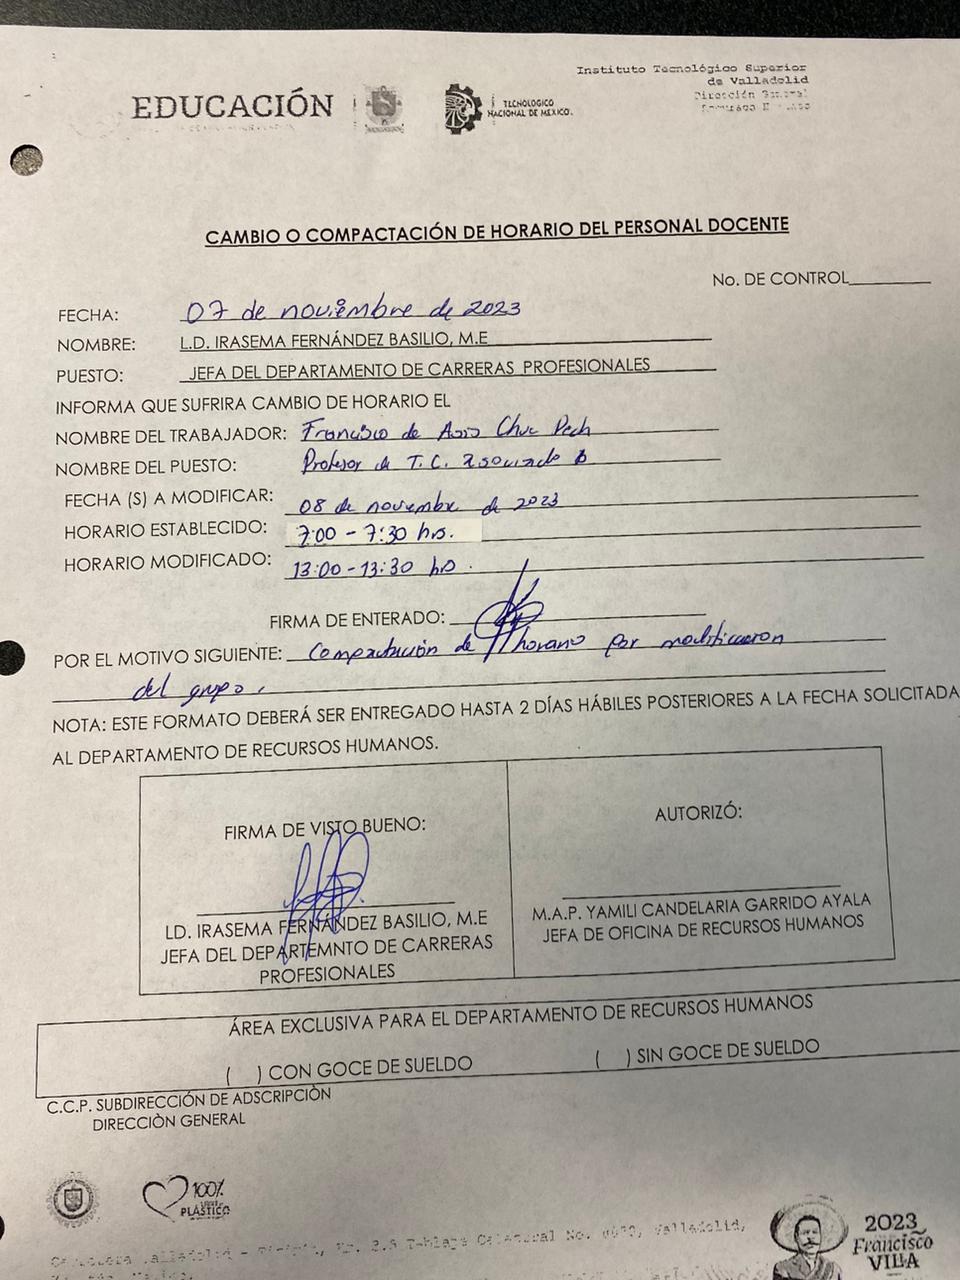 Instituto Tecnológico Superior
de Valladolid
Dirección General
EDUCACIÓN
TECNOLÓGICO
NACIONAL DE MÉXICO
CAMBIO O COMPACTACIÓN DE HORARIO DEL PERSONAL DOCENTE
No. DE CONTROL
FECHA: 07 de noviembre de 2023
NOMBRE: L.D. IRASEMA FERNÁNDEZ BASILIO, M.E
PUESTO: JEFA DEL DEPARTAMENTO DE CARRERAS PROFESIONALES
INFORMA QUE SUFRIRA CAMBIO DE HORARIO EL
NOMBRE DEL TRABAJADOR: Francisco de Asis Chuc Pech
NOMBRE DEL PUESTO: Profesor de T.C. Asociado B
FECHA (S) A MODIFICAR: 08 de noviembre de 2023
HORARIO ESTABLECIDO: 7:00 - 7:30 hrs.
HORARIO MODIFICADO: 13:00 - 13:30 hrs.
FIRMA DE ENTERADO:
POR EL MOTIVO SIGUIENTE: Compactación de horario por modificación
del grupo.
NOTA: ESTE FORMATO DEBERÁ SER ENTREGADO HASTA 2 DÍAS HÁBILES POSTERIORES A LA FECHA SOLICITADA
AL DEPARTAMENTO DE RECURSOS HUMANOS.
FIRMA DE VISTO BUENO:
LD. IRASEMA FERNÁNDEZ BASILIO, M.E
JEFA DEL DEPARTEMNTO DE CARRERAS
PROFESIONALES
AUTORIZÓ:
M.A.P. YAMILI CANDELARIA GARRIDO AYALA
JEFA DE OFICINA DE RECURSOS HUMANOS
ÁREA EXCLUSIVA PARA EL DEPARTAMENTO DE RECURSOS HUMANOS
( ) CON GOCE DE SUELDO ( ) SIN GOCE DE SUELDO
C.C.P. SUBDIRECCIÓN DE ADSCRIPCIÒN
DIRECCIÒN GENERAL
100%
PLÁSTICO
Valladolid,
2023
Francisco
VILLA